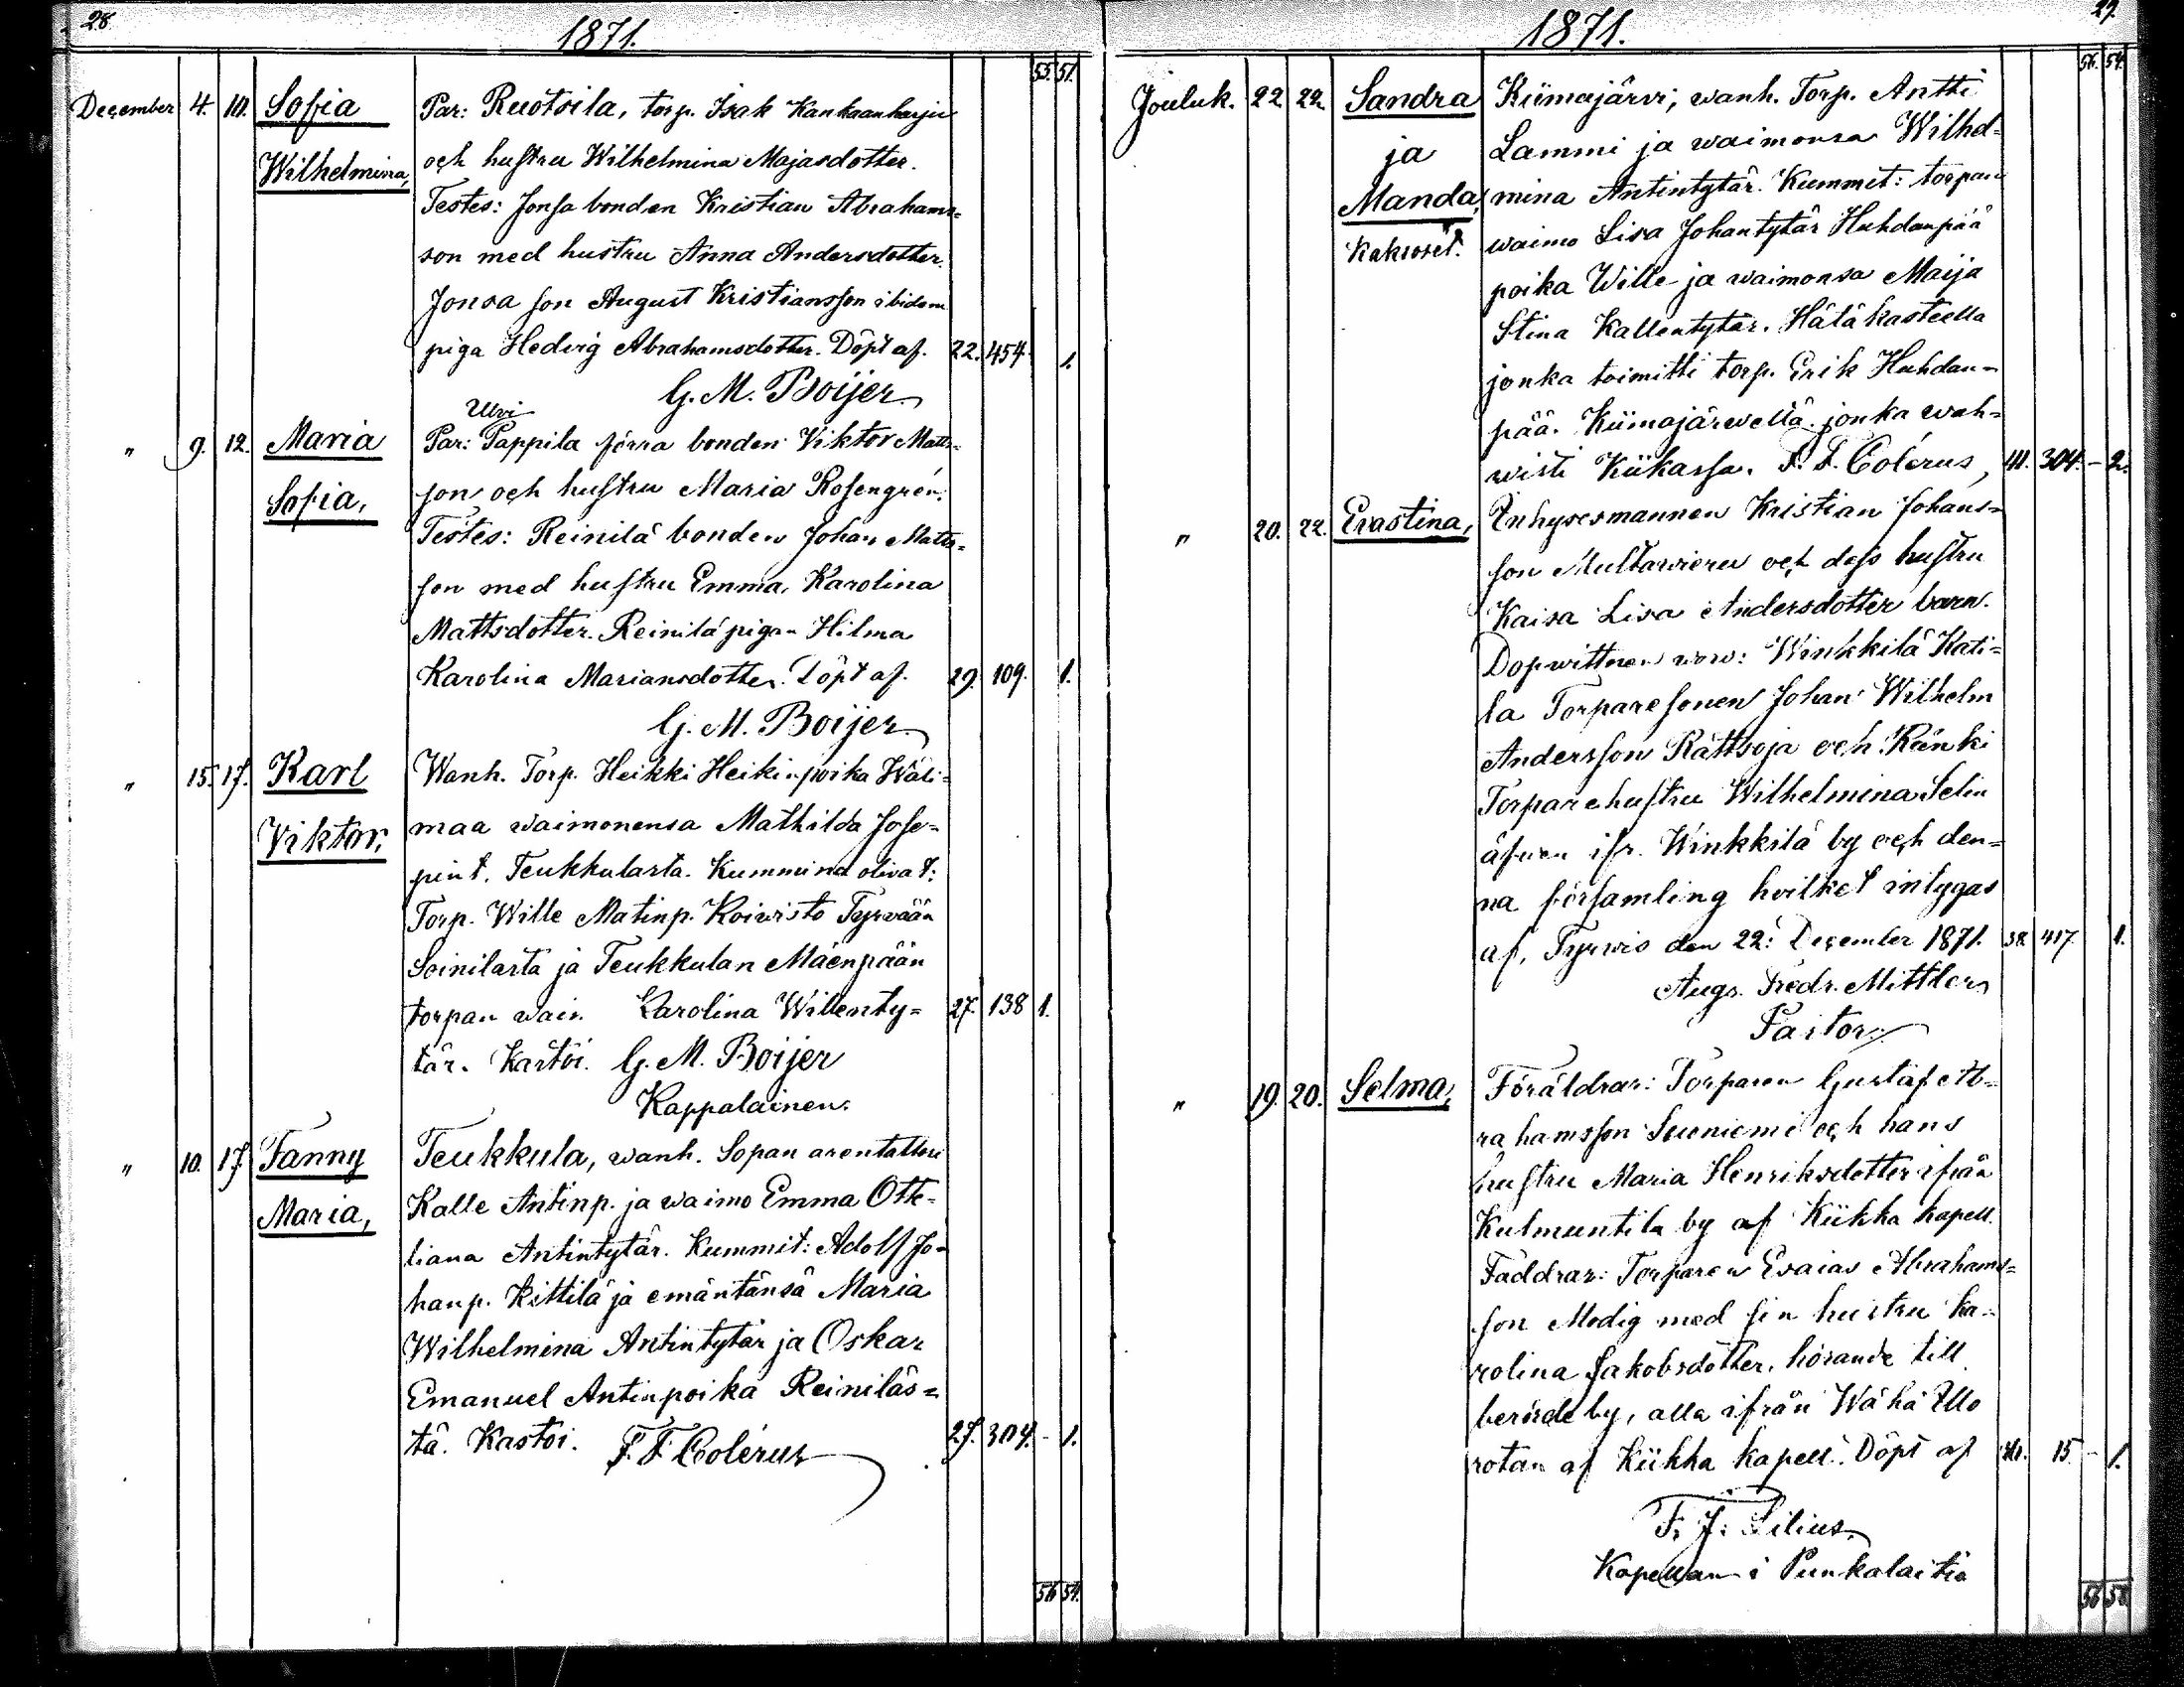 28.
1871.
55. 51.
December 4. 10. Sofia Par: Ruotsila, torp. Isak Kankaanharju
Wilhelmina, och hustru Wilhelmina Majasdotter.
Testes: Jonsa bonden Kristian Abrahams=
son med hustru Anna Andersdotter.
Jonsa son August Kristiansson ibidem
piga Hedvig Abrahamsdotter. Döpt af. 22. 454. 1.
G. M. Boijer
Ulvi
" 9. 12. Maria Par: Pappila förra bonden Viktor Matts=
Sofia, son och hustru Maria Rosengrén.
Testes: Reinilä bonden Johan Matts=
son med hustru Emma, Karolina
Mattsdotter. Reinilä pigan Hilma
Karolina Mariansdotter. Döpt af. 29. 109. 1.
G. M. Boijer
" 15. 17. Karl Wanh. Torp. Heikki Heikinpoika Wäli=
Viktor, maa waimonensa Mathilda Jose=
pint. Teukkulasta. Kummina olivat:
Torp. Wille Matinp. Koivisto Tyrvään
Soinilasta ja Teukkulan Mäenpään
torpan waim. Karolina Willenty= 27. 138 1.
tär. Kastoi. G. M. Boijer
Kappalainen.
" 10. 17. Fanny Teukkula, wanh. Sopan arentattori
Maria, Kalle Antinp. ja waimo Emma Otte=
liana Antintytär. Kummit: Adolf Jo=
hanp. Kittilä ja emäntänsä Maria
Wilhelmina Antintytär ja Oskar
Emanuel Antinpoika Reiniläs=
tä. Kastoi. F. F. Colérus 27. 304. - 1.
56. 54.
29.
1871.
56. 54.
Jouluk. 22 22. Sandra Kiimajärvi, wanh. Torp. Antti
ja Lammi ja waimonsa Wilhel=
Manda, mina Antintytär. Kummit: torpan
Kaksoset. waimo Lisa Johantytär Huhdanpää
poika Wille ja waimonsa Maija
Stina Kallentytär. Hätäkasteella
jonka toimitti torp. Erik Huhdan=
pää. Kiimajärweltä. jonka wah=
wisti Kiikassa. F. F. Colérus, 41. 304. - 2.
" 20. 22. Evastina, Inhysesmannen Kristian Johans=
son Multawieru och dess hustru
Kaisa Lisa Andersdotter barn.
Dopwittnen woro: Winkkilä Kati=
la Torparesonen Johan Wilhelm
Andersson Rättsoja och Känki
Torparehustru Wilhelmina Selin
äfwen ifr. Winkkilä by och den=
na församling hvilket intygas
af, Tyrwis den 22: December 1871. 38. 417. 1.
Aug. Fredr. Mittler
Pastor.
" 19. 20. Selma, Föräldrar: Torparen Gustaf Ab=
rahamsson Suoniemi och hans
hustru Maria Henriksdotter ifrån
Kulmuntila by af Kiikka kapell.
Faddrar: Torparen Esaias Abrahams=
son Modig med sin hustru Ka=
rolina Jakobsdotter, hörande till
berörde by, alla ifrån Wähä Ello
rotan af Kiikka kapell. Döpt af 15. - 1.
F. J. Lilius,
Kapellan i Punkalaitio
56 58.